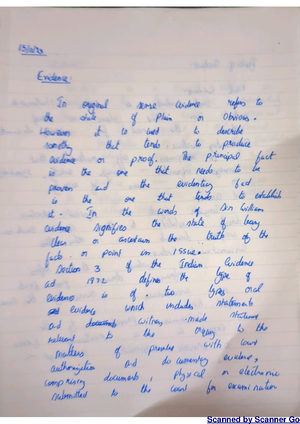 Evidence:
In original sense evidence refers to
the state of plain or obvious.
However it is used to describe
something that tends to produce
evidence or proof. The principal fact
is the one that needs to be
proven and the evidentiary fact
is the one that tends to establish
it. In the words of Sir William
evidence signifies the state of being
clear or ascertain the truth of the
fact or point in issue.
Section 3 of the Indian Evidence
act 1872 defines the type of
evidence is of two types oral
evidence which includes statements
and witness made statement
relevant to the inquiry to the
matters of with court
authorization and documentary evidence,
comprising documents, physical or electronic
submitted to the court for examination
Scanned by Scanner Go